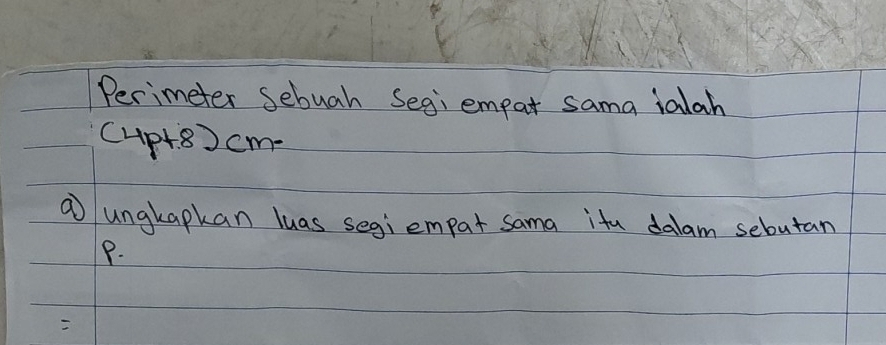 Perimeter sebuah segi empat sama ialah
(4p+8) cm.
a) ungkapkan luas segi empat sama itu dalam sebutan
p.
=